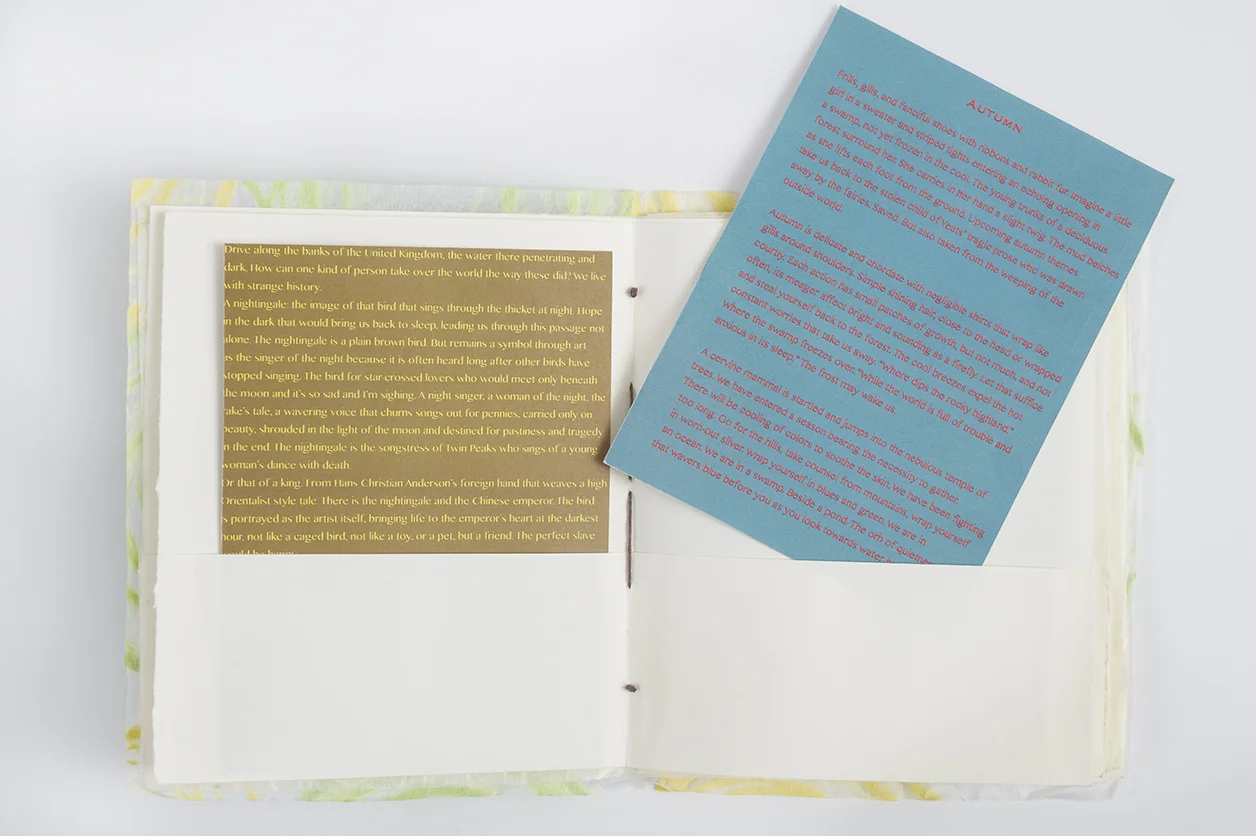 Drive along the banks of the United Kingdom, the water there penetrating and
dark. How can one kind of person take over the world the way these did? We live
with strange history.
A nightingale: the image of that bird that sings through the thicket at night. Hope
in the dark that would bring us back to sleep, leading us through this passage not
alone. The nightingale is a plain brown bird. But remains a symbol through art
as the singer of the night because it is often heard long after other birds have
stopped singing. The bird for star-crossed lovers who would meet only beneath
the moon and it's so sad and I'm sighing. A night singer, a woman of the night, the
rake's tale, a wavering voice that churns songs out for pennies, carried only on
beauty, shrouded in the light of the moon and destined for pastiness and tragedy
in the end. The nightingale is the songstress of Twin Peaks who sings of a young
woman's dance with death.
Or that of a king. From Hans Christian Anderson's foreign hand that weaves a high
Orientalist style tale. There is the nightingale and the Chinese emperor. The bird
is portrayed as the artist itself, bringing life to the emperor's heart at the darkest
hour, not like a caged bird, not like a toy, or a pet, but a friend. The perfect slave
would be happy
AUTUMN
Frills, gills, and fanciful shoes with ribbons and rabbit fur. Imagine a little
girl in a sweater and striped tights entering an echoing opening in
a swamp, not yet frozen in the cool. The young trunks of a deciduous
forest surround her. She carries in her hand a slight twig. The mud belches
as she lifts each foot from the ground. Upcoming autumn themes
take us back to the stolen child of Yeats' tragic prose who was drawn
away by the fairies. Saved. But also taken from the weeping of the
outside world.
Autumn is delicate and chordate with negligible shirts that wrap like
gills around shoulders. Simple shining hair, close to the head or wrapped
courtly. Each action has small patches of growth, but not much, and not
often, its meager affect bright and sounding as a firefly. Let that suffice
and steal yourself back to the forest. The cool breezes expel the hot
constant worries that take us away, "where dips the rocky highland."
Where the swamp freezes over, "while the world is full of trouble and
anxious in its sleep." The frost may wake us.
A cervine mammal is startled and jumps into the nebulous temple of
trees. We have entered a season bearing the necessity to gather.
There will be cooling of colors to soothe the skin, we have been fighting
too long. Go for the hills, take counsel from mountains, wrap yourself
in worn-out silver, wrap yourself in blues and green. We are in
an ocean. We are in a swamp. Beside a pond. The orb of quietness
that wavers blue before you as you look towards water